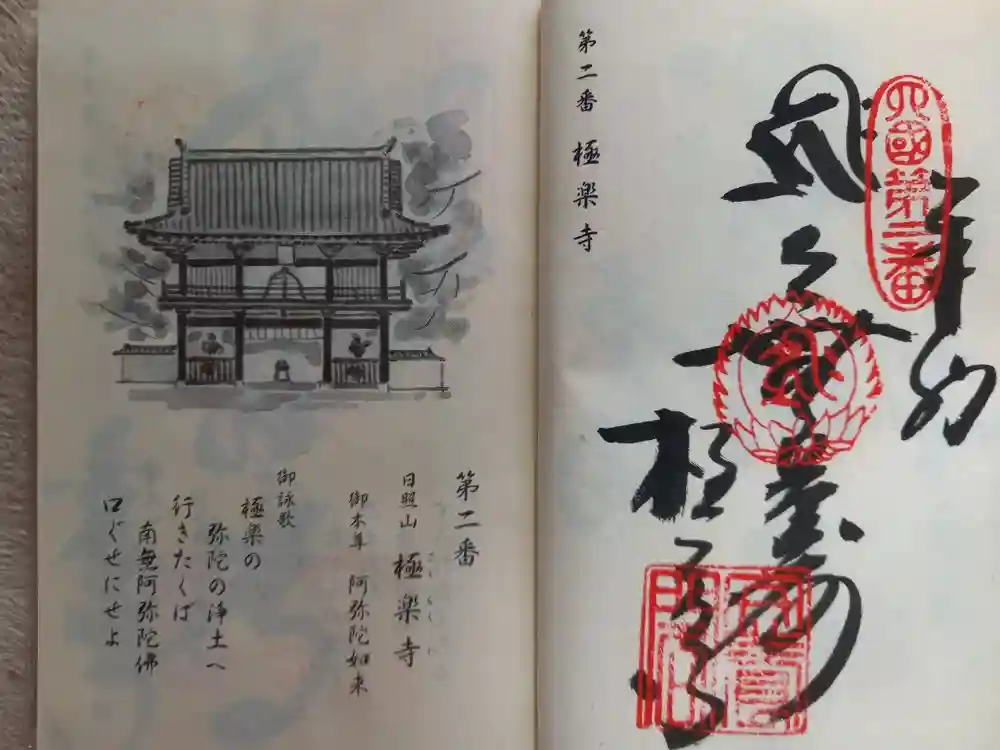 四國第二番
奉納
極楽寺
第二番 極楽寺
第二番
日照山 極楽寺
御本尊 阿弥陀如来
御詠歌
極楽の
弥陀の浄土へ
行きたくば
南無阿弥陀佛
口ぐせにせよ